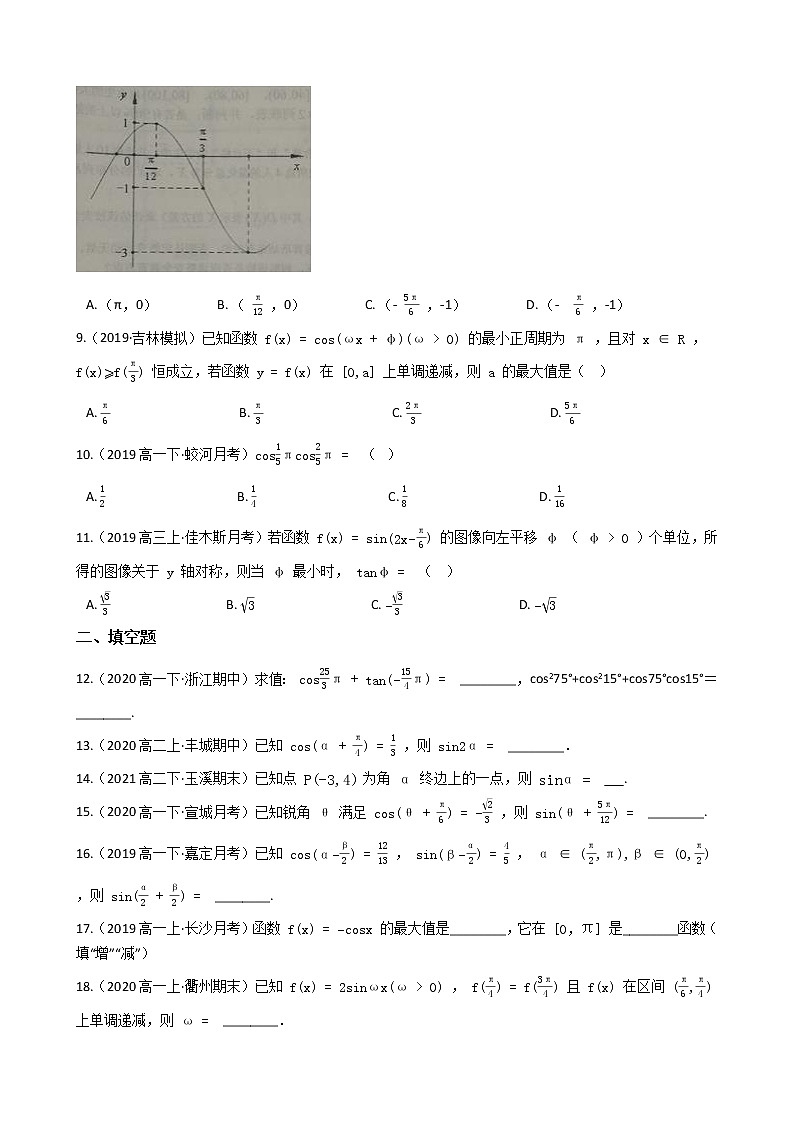 y
1
π/3
0
π/12
x
-1
-3
A.（π，0） B.（ π/12 ，0） C.（- 5π/6 ，-1） D.（- π/6 ，-1）
9.（2019·吉林模拟）已知函数 f(x) = cos(ωx + φ)(ω > 0) 的最小正周期为 π ，且对 x ∈ R ，
f(x)⩾f(π/3) 恒成立，若函数 y = f(x) 在 [0,a] 上单调递减，则 a 的最大值是（ ）
A. π/6 B. π/3 C. 2π/3 D. 5π/6
10.（2019高一下·蛟河月考）cos1/5πcos2/5π = （ ）
A. 1/2 B. 1/4 C. 1/8 D. 1/16
11.（2019高三上·佳木斯月考）若函数 f(x) = sin(2x−π/6) 的图像向左平移 φ （ φ > 0 ）个单位，所
得的图像关于 y 轴对称，则当 φ 最小时， tanφ = （ ）
A. √3/3 B. √3 C. −√3/3 D. −√3
二、填空题
12.（2020高一下·浙江期中）求值： cos25/3π + tan(−15/4π) = ________，cos²75°+cos²15°+cos75°cos15°＝
________.
13.（2020高二上·丰城期中）已知 cos(α + π/4) = 1/3 ，则 sin2α = ________．
14.（2021高二下·玉溪期末）已知点 P(−3,4)为角 α 终边上的一点，则 sinα = ___.
15.（2020高一下·宣城月考）已知锐角 θ 满足 cos(θ + π/6) = −√2/3 ，则 sin(θ + 5π/12) = ________.
16.（2019高一下·嘉定月考）已知 cos(α−β/2) = 12/13 ， sin(β−α/2) = 4/5 ， α ∈ (π/2,π),β ∈ (0,π/2)
，则 sin(α/2 + β/2) = ________.
17.（2019高一上·长沙月考）函数 f(x) = −cosx 的最大值是________，它在 [0，π] 是________函数（
填“增”“减”）
18.（2020高一上·衢州期末）已知 f(x) = 2sinωx(ω > 0) ， f(π/4) = f(3π/4) 且 f(x) 在区间 (π/6,π/4)
上单调递减，则 ω = ________．